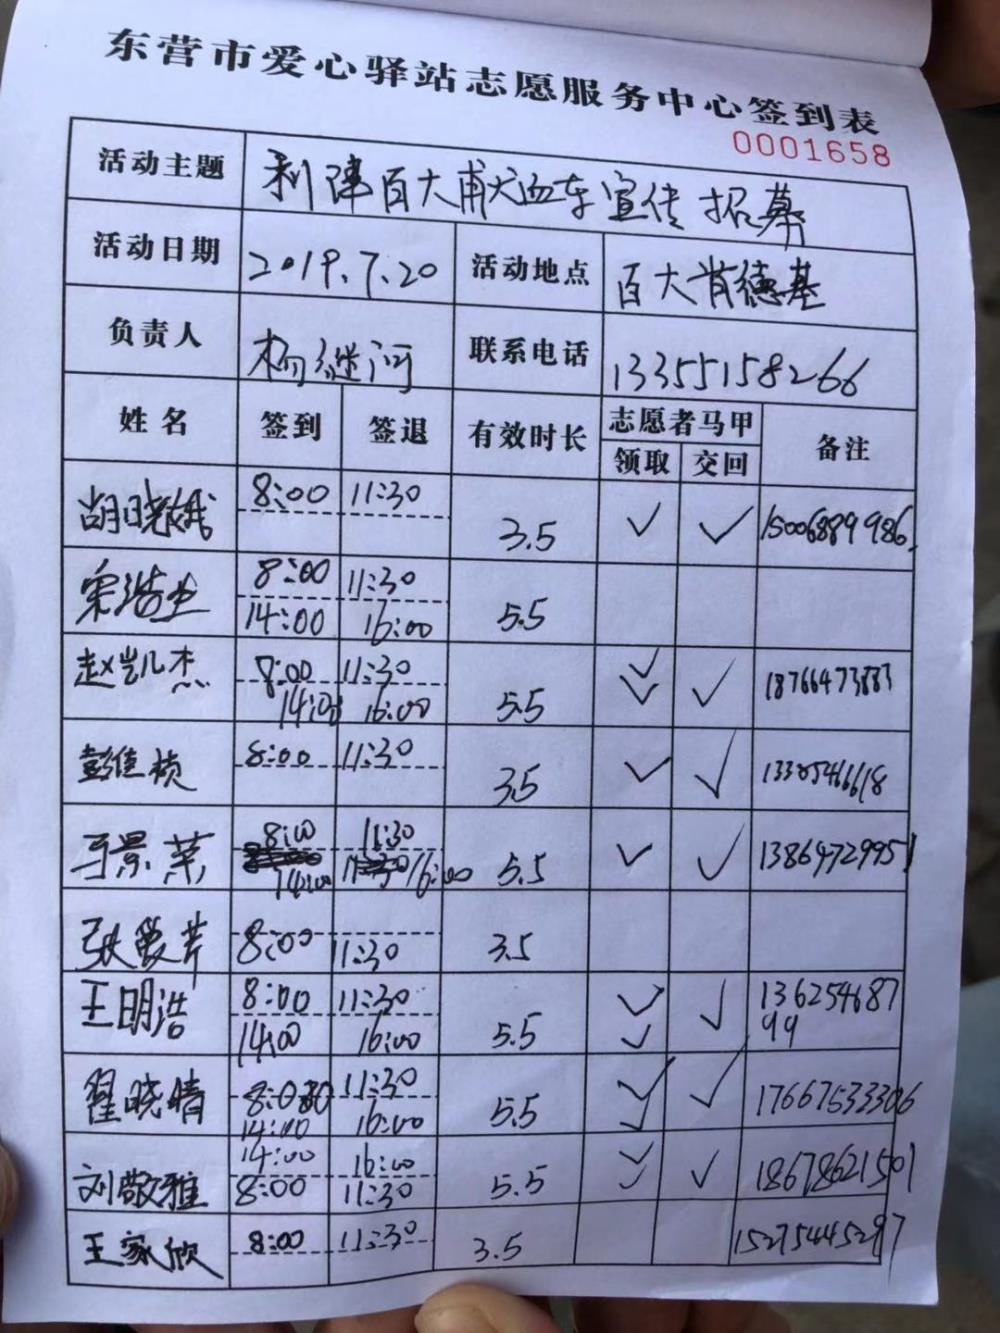 东营市爱心驿站志愿服务中心签到表
0001658
活动主题 利津百大献血车宣传招募
活动日期 2019.7.20 活动地点 百大肯德基
负责人 杨继河 联系电话 13355158266
姓名 签到 签退 有效时长 志愿者马甲 备注
领取 交回
胡晓娥 8:00 11:30 3.5 ✓ ✓ 15006889986
8:00 11:30
宋浩 14:00 16:00 5.5
赵凯杰 8:00 11:30 ✓
14:00 16:00 5.5 ✓ ✓ 18766473883
彭佳桢 8:00 11:30 3.5 ✓ ✓ 13305466618
景 8:00 11:30
14:00 16:00 5.5 ✓ ✓ 13864729951
张爱芹 8:00 11:30 3.5
王明浩 8:00 11:30 ✓ ✓ 136254687
14:00 16:00 5.5 ✓ 99
翟晓晴 8:00 11:30 ✓ ✓
14:00 16:00 5.5 ✓ 17667533306
14:00 16:00 ✓
刘敬雅 8:00 11:30 5.5 ✓ ✓ 18678621501
王家欣 8:00 11:30 3.5 15275445297